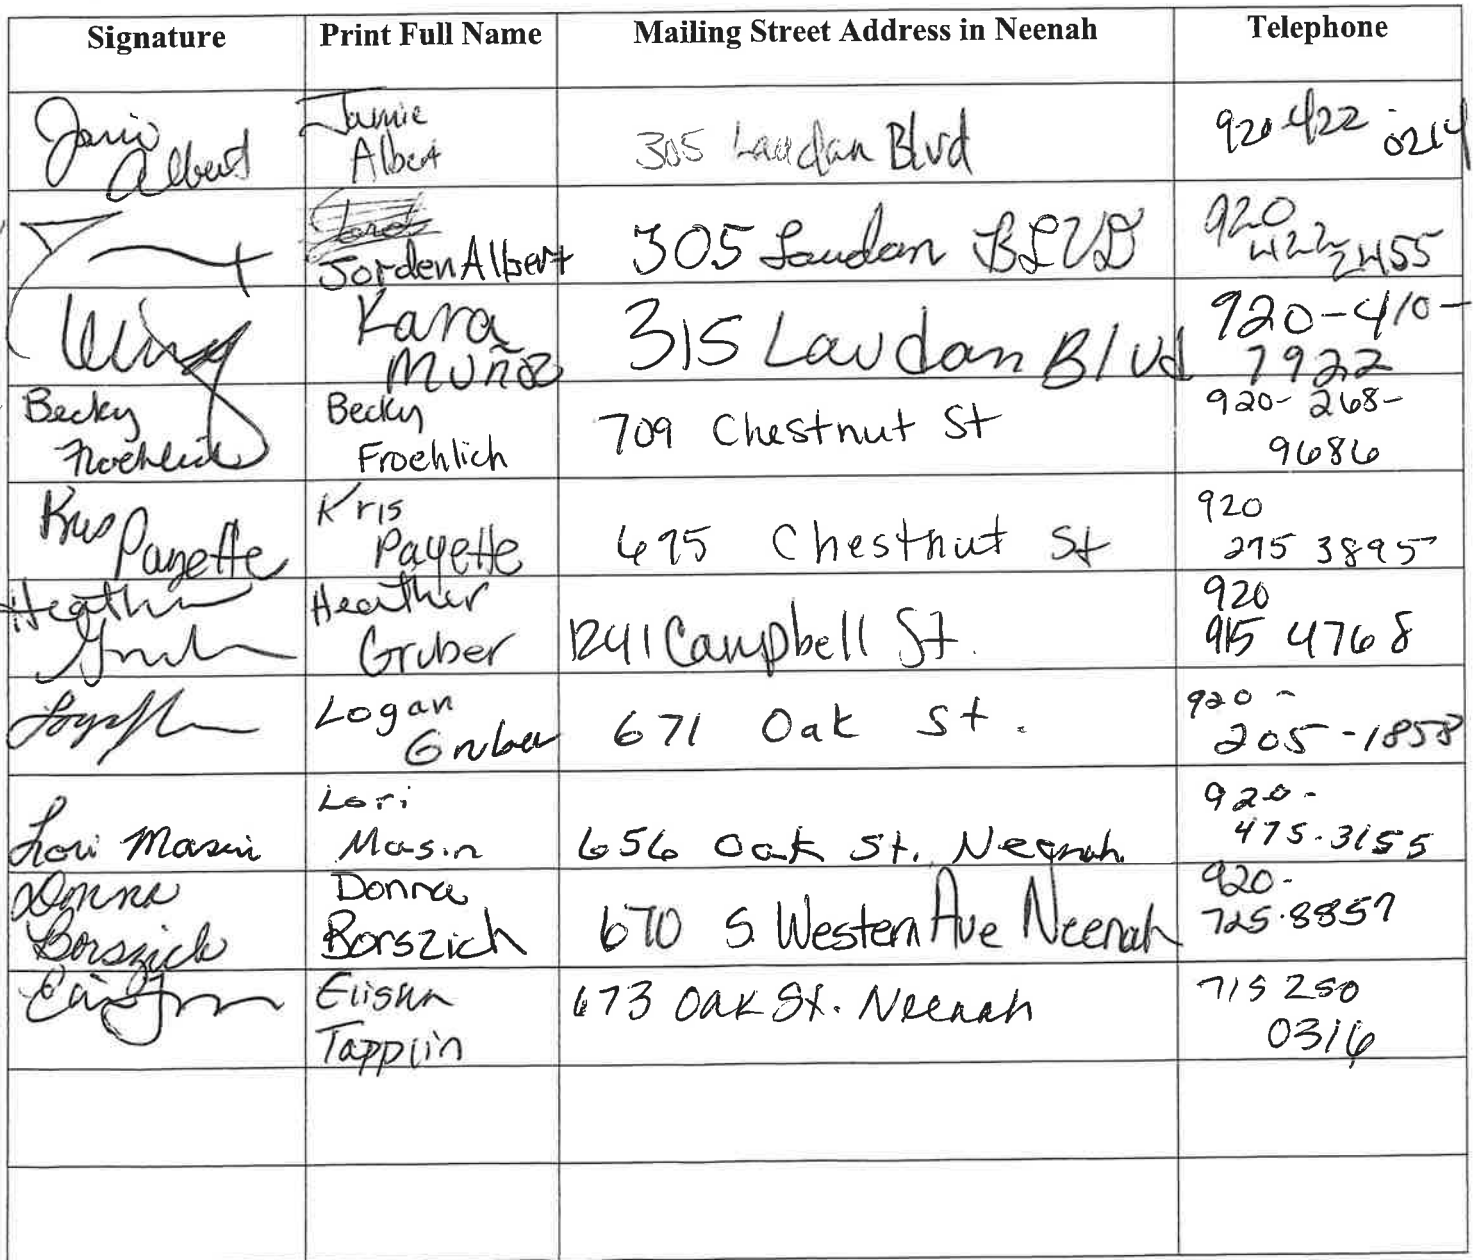 Signature Print Full Name Mailing Street Address in Neenah Telephone
Jamie Albert Jamie Albert 305 Laudan Blvd 920 422 0214
Jorden Albert 305 Laudan BLVD 920 422 2455
Kara Muñoz 315 Laudan Blvd 920-410-7922
Becky Froehlich Becky Froehlich 709 Chestnut St 920-268-9686
Kris Payette Kris Payette 675 Chestnut St 920 275 3895
Heather Gruber Heather Gruber 1241 Campbell St. 920 915 4768
Logan Gruber 671 Oak St. 920-205-1858
Lori Masin Lori Masin 656 Oak St. Neenah 920-475-3155
Donna Borszich Donna Borszich 670 S. Western Ave Neenah 920-725-8857
Tapplin 673 Oak St. Neenah 715 250 0316